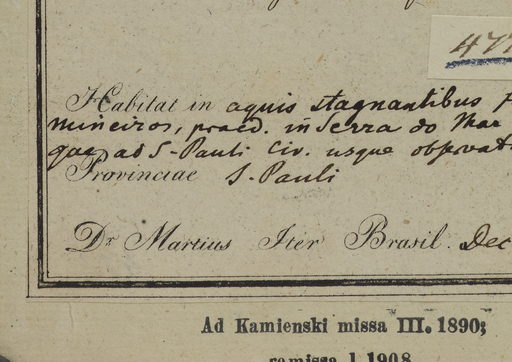 477
Habitat in aquis stagnantibus
mineiros, praed. in Serra do Mar
ad S. Pauli Civ. usque observat
Provinciae S. Pauli
Dr. Martius Iter Brasil. Dec
Ad Kamienski missa III. 1890;
remissa 1 1908